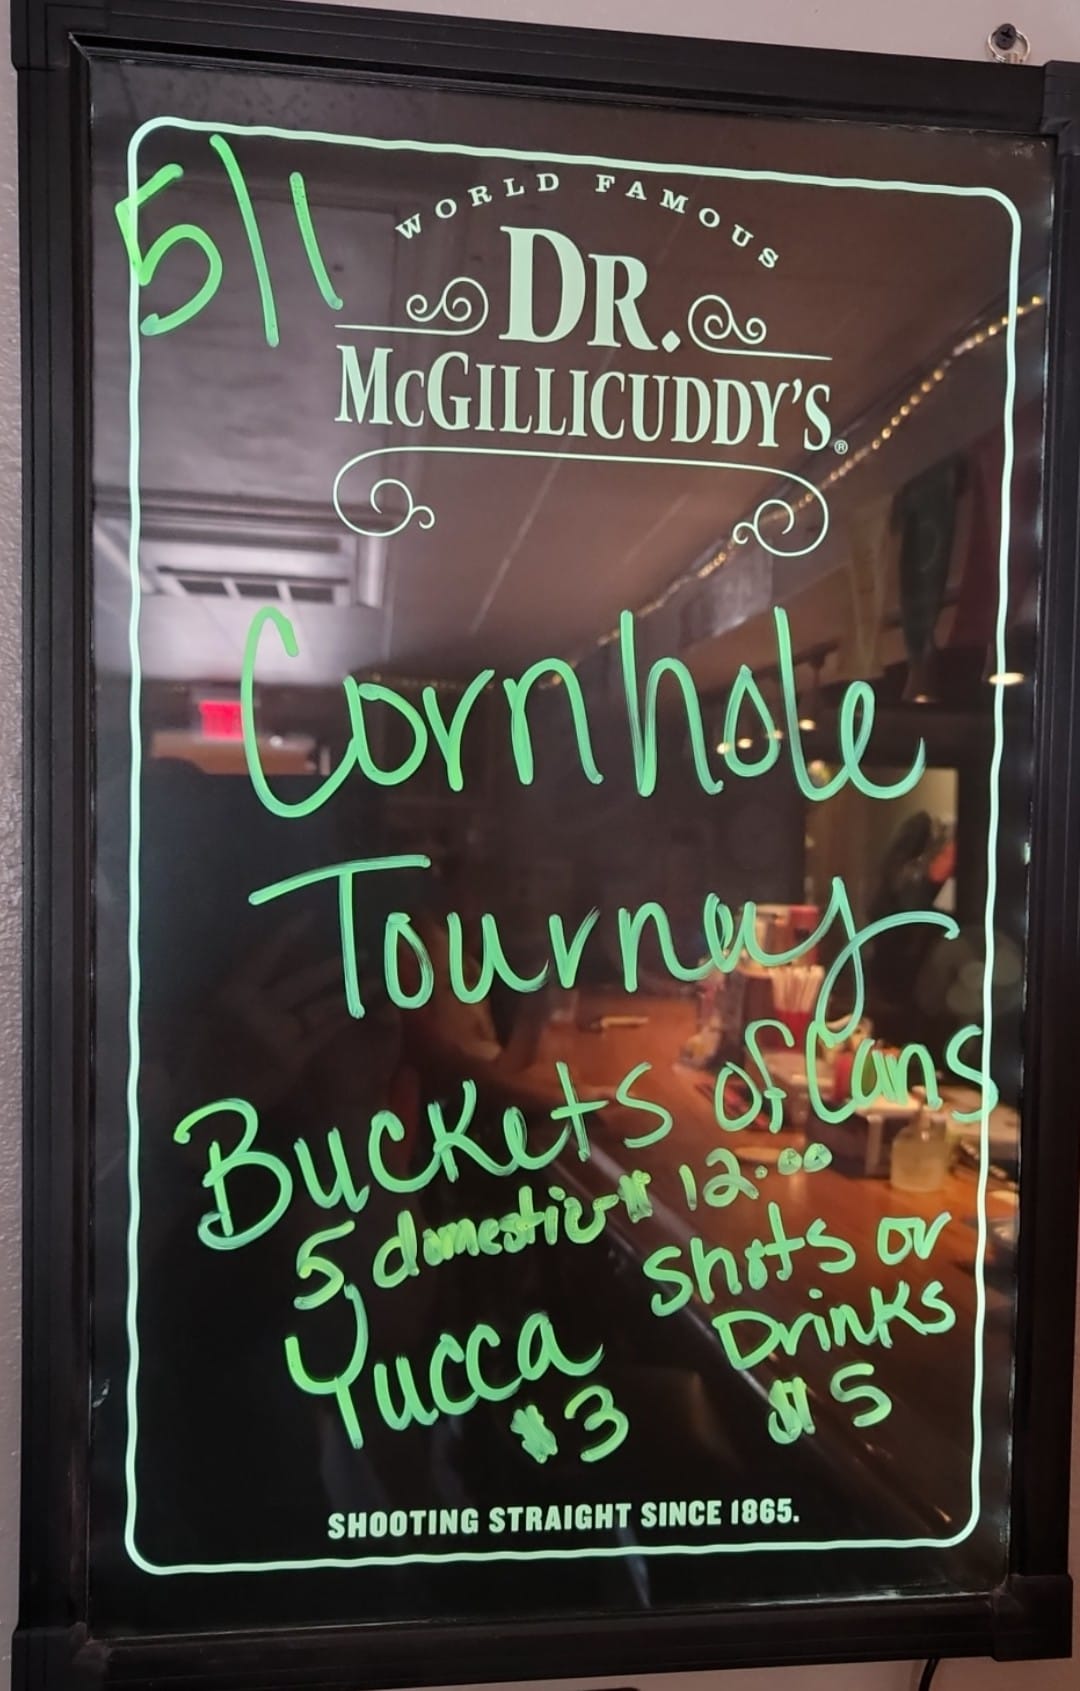 5/1
WORLD FAMOUS
DR.
McGILLICUDDY'S®
Cornhole
Tourney
Buckets of Cans
5 domestic $12.00
Yucca
$3
Shots or
Drinks
$5
SHOOTING STRAIGHT SINCE 1865.